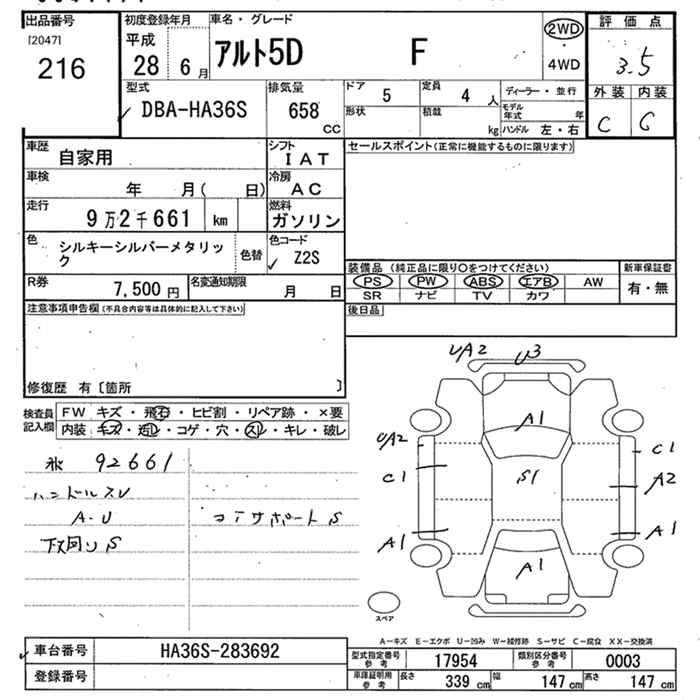 出品番号
[2047]
216
初度登録年月
平成
28 6月
車名・グレード
アルト5D F
2WD
・
4WD
評価点
3.5
外装 内装
C C
型式
DBA-HA36S
排気量
658
CC
ドア
5
定員
4 人
形状
積載
kg
ディーラー・並行
モデル年式 年
ハンドル 左・右
車歴
自家用
シフト
IAT
車検
年 月( 日)
冷房
AC
走行
9万2千661 km
燃料
ガソリン
色
シルキーシルバーメタリッ
ク
色替
色コード
Z2S
R券
7,500 円
名変通知期限
月 日
セールスポイント(正常に機能するものに限ります)
装備品 (純正品に限り○をつけてください)
PS PW ABS エアB AW
SR ナビ TV カワ
新車保証書
有・無
後日品
注意事項申告欄(不具合内容等は具体的に記入して下さい)
修復歴 有〔箇所 〕
検査員
記入欄
FW キズ・飛石・ヒビ割・リペア跡・×要
内装 キズ・汚レ・コゲ・穴・スレ・キレ・破レ
92661
ハンドルスレ
A-U
下回りS
コアサポートS
UA2
U3
A1
UA2
C1
S1
C1
A2
A1
A1
A1
スペア
A-キズ E-エクボ U-凹み W-補修跡 S-サビ C-腐食 XX-交換済
車台番号
HA36S-283692
登録番号
型式指定番号
参考
17954
類別区分番号
参考
0003
車庫証明用
参考
長さ
339 cm
幅
147 cm
高さ
147 cm